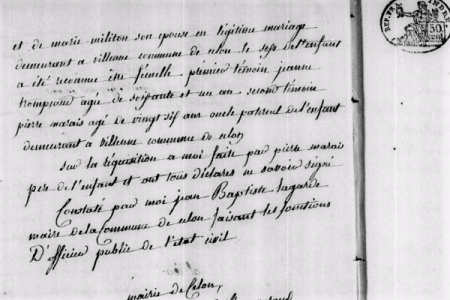 et de marie militon son epouse en legitime mariage
demeurant a villenne commune de celon le sexe de l'enfant
a été reconnu être femelle premier témoin jeanne
trompeaud agé de soixante et un an second témoin
pierre marais agé de vingt six ans oncle paternel de l'enfant
demeurant a villenne commune de celon
sur la réquisition a moi faite par pierre marais
pere de l'enfant et ont tous déclarés ne savoir signé
Constaté par moi jean Baptiste lagarde
maire de la Commune de celon faisant les fonctions
D'officier public de l'etat civil
mairie de Celon,
50
cent